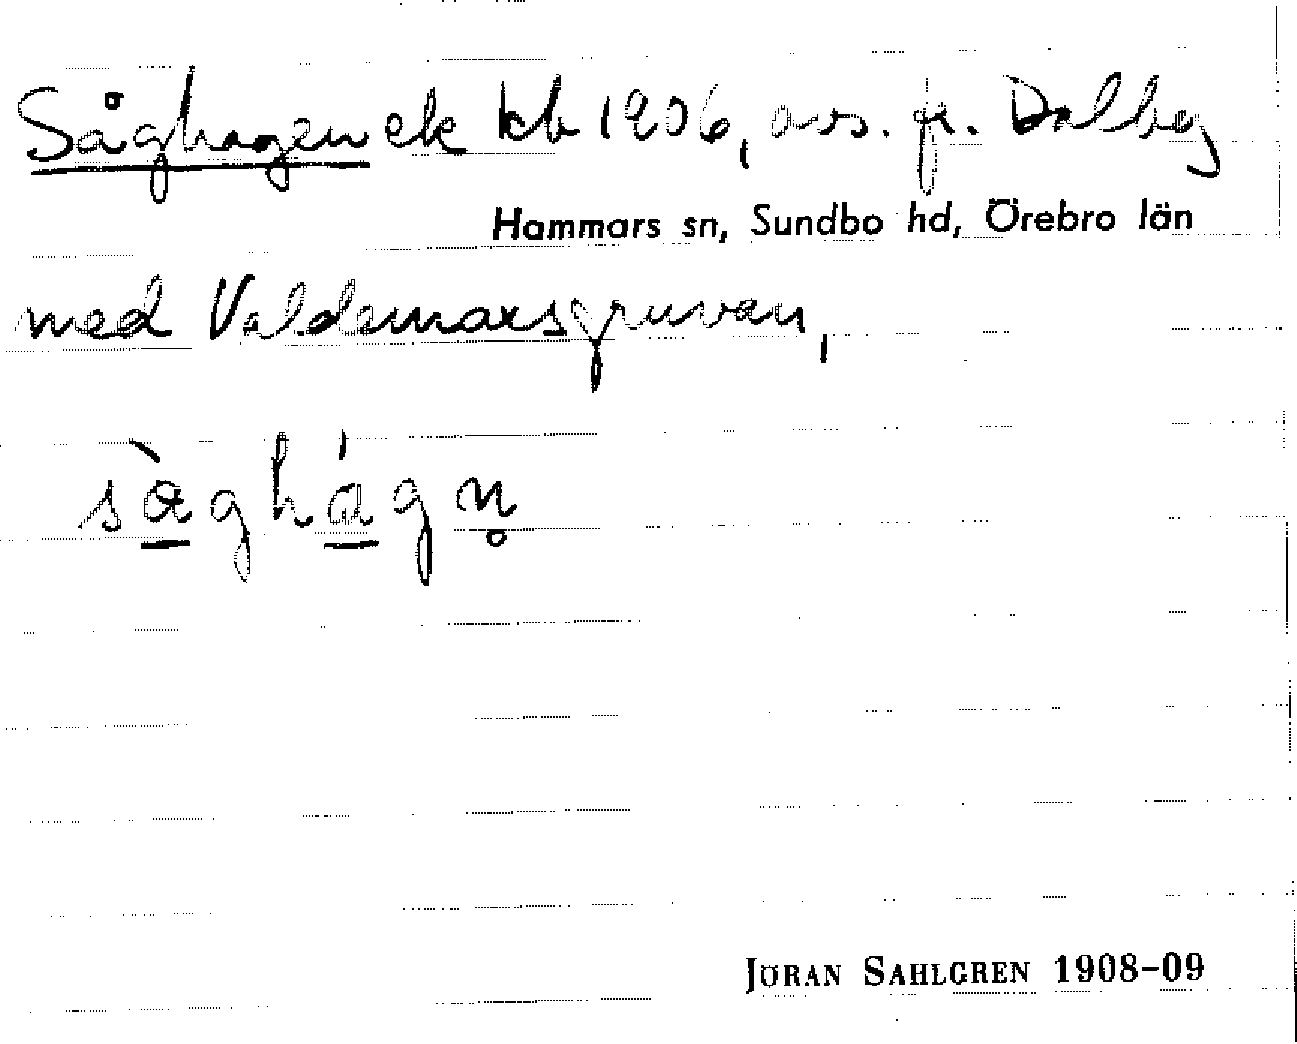 Såghagen ek kb 1906, avs. fr. Dalby
Hammars sn, Sundbo hd, Örebro län
med Valdemarsgruvan,
sàghágn̥
JÖRAN SAHLGREN 1908–09